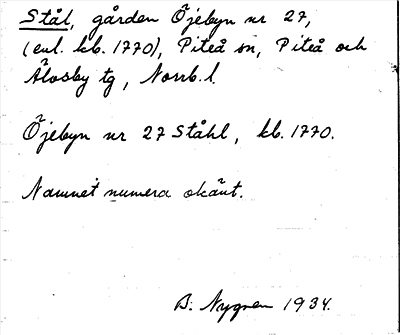 Stål, gården Öjebyn nr 27,
(enl. kb. 1770), Piteå sn, Piteå och
Älvsby tg, Norrb. l.
Öjebyn nr 27 Ståhl, kb. 1770.
Namnet numera okänt.
B. Nygren 1934.